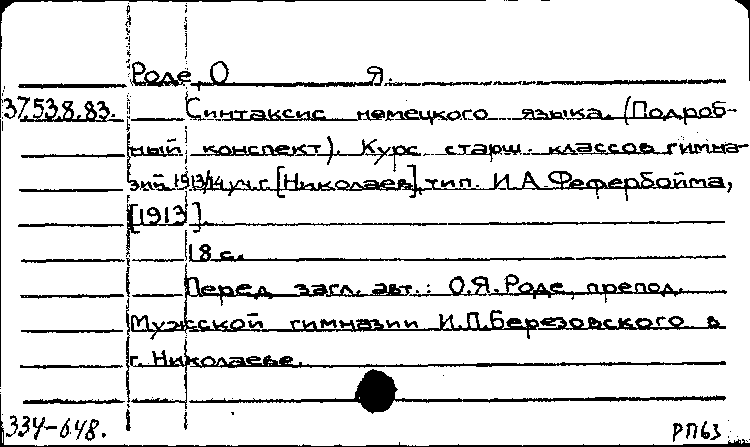 Роде, О Я.
37.538.83. Синтаксис немецкого языка. (Подроб-
ный конспект). Курс старш. классов гимна-
зий 1913/14 уч.г. [Николаев], тип. И.А Фефербойма,
[1913].
18 с.
Перед загл. авт.: О.Я.Роде, препод.
Мужской гимназии И.П.Березовского в
г. Николаеве.
334-648. РП63